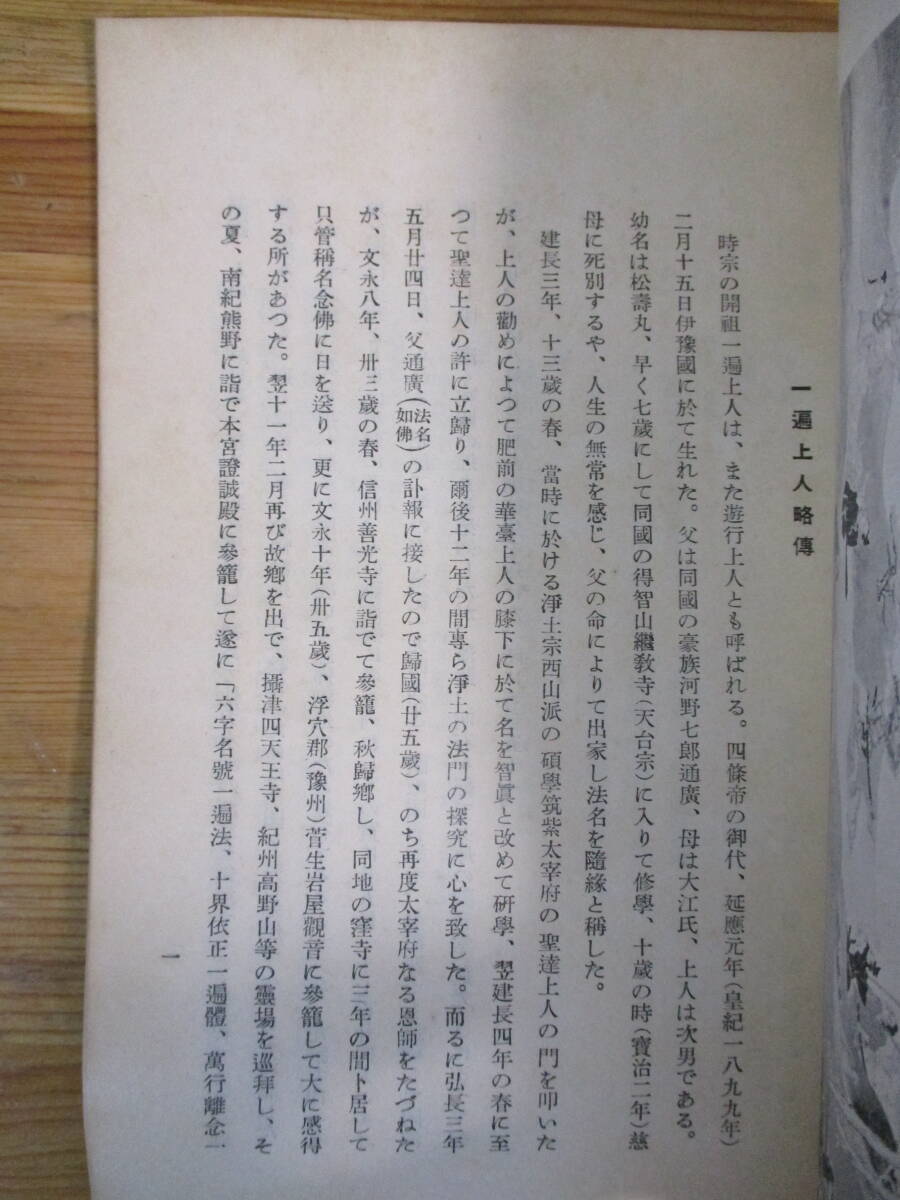 一遍上人略傳
時宗の開祖一遍上人は、また遊行上人とも呼ばれる。四條帝の御代、延應元年(皇紀一八九九年)
二月十五日伊豫國に於て生れた。父は同國の豪族河野七郎通廣、母は大江氏、上人は次男である。
幼名は松壽丸、早く七歲にして同國の得智山繼教寺(天台宗)に入りて修學、十歲の時(寶治二年)慈
母に死別するや、人生の無常を感じ、父の命によりて出家し法名を隨緣と稱した。
建長三年、十三歲の春、當時に於ける淨土宗西山派の碩學筑紫太宰府の聖達上人の門を叩いた
が、上人の勸めによつて肥前の華臺上人の膝下に於て名を智眞と改めて研學、翌建長四年の春に至
つて聖達上人の許に立歸り、爾後十二年の間專ら淨土の法門の探究に心を致した。而るに弘長三年
五月廿四日、父通廣(法名如佛)の訃報に接したので歸國(廿五歲)、のち再度太宰府なる恩師をたづねた
が、文永八年、卅三歲の春、信州善光寺に詣でて參籠、秋歸鄕し、同地の窪寺に三年の間卜居して
只管稱名念佛に日を送り、更に文永十年(卅五歲)、浮穴郡(豫州)菅生岩屋觀音に參籠して大に感得
する所があつた。翌十一年二月再び故鄕を出で、攝津四天王寺、紀州高野山等の靈場を巡拜し、そ
の夏、南紀熊野に詣で本宮證誠殿に參籠して遂に「六字名號一遍法、十界依正一遍體、萬行離念一
一